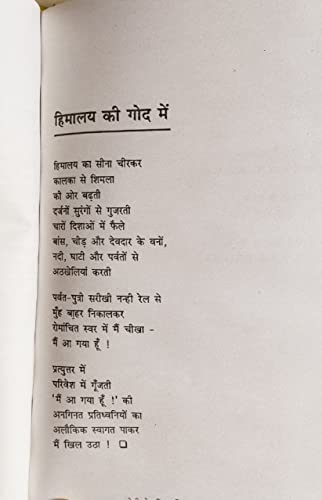 हिमालय की गोद में
हिमालय का सीना चीरकर
कालका से शिमला
की ओर बढ़ती
दर्जनों सुरंगों से गुजरती
चारों दिशाओं में फैले
बांस, चीड़ और देवदार के वनों,
नदी, घाटी और पर्वतों से
अठखेलियां करती
पर्वत-पुत्री सरीखी नन्ही रेल से
मुँह बाहर निकालकर
रोमांचित स्वर में मैं चीखा -
मैं आ गया हूँ !
प्रत्युत्तर में
परिवेश में गूँजती
'मैं आ गया हूँ !' की
अनगिनत प्रतिध्वनियों का
अलौकिक स्वागत पाकर
मैं खिल उठा ! ❑